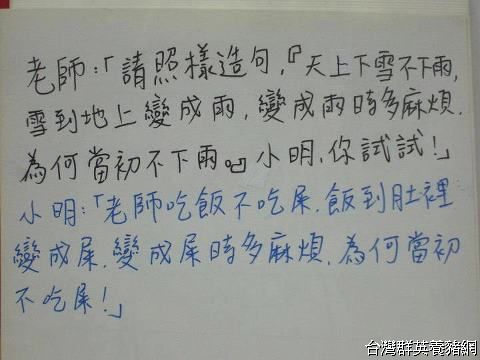 老師：「請照樣造句，『天上下雪不下雨，
雪到地上變成雨，變成雨時多麻煩，
為何當初不下雨。』小明，你試試！」
小明：「老師吃飯不吃屎，飯到肚裡
變成屎，變成屎時多麻煩，為何當初
不吃屎！」
台灣群英養豬網